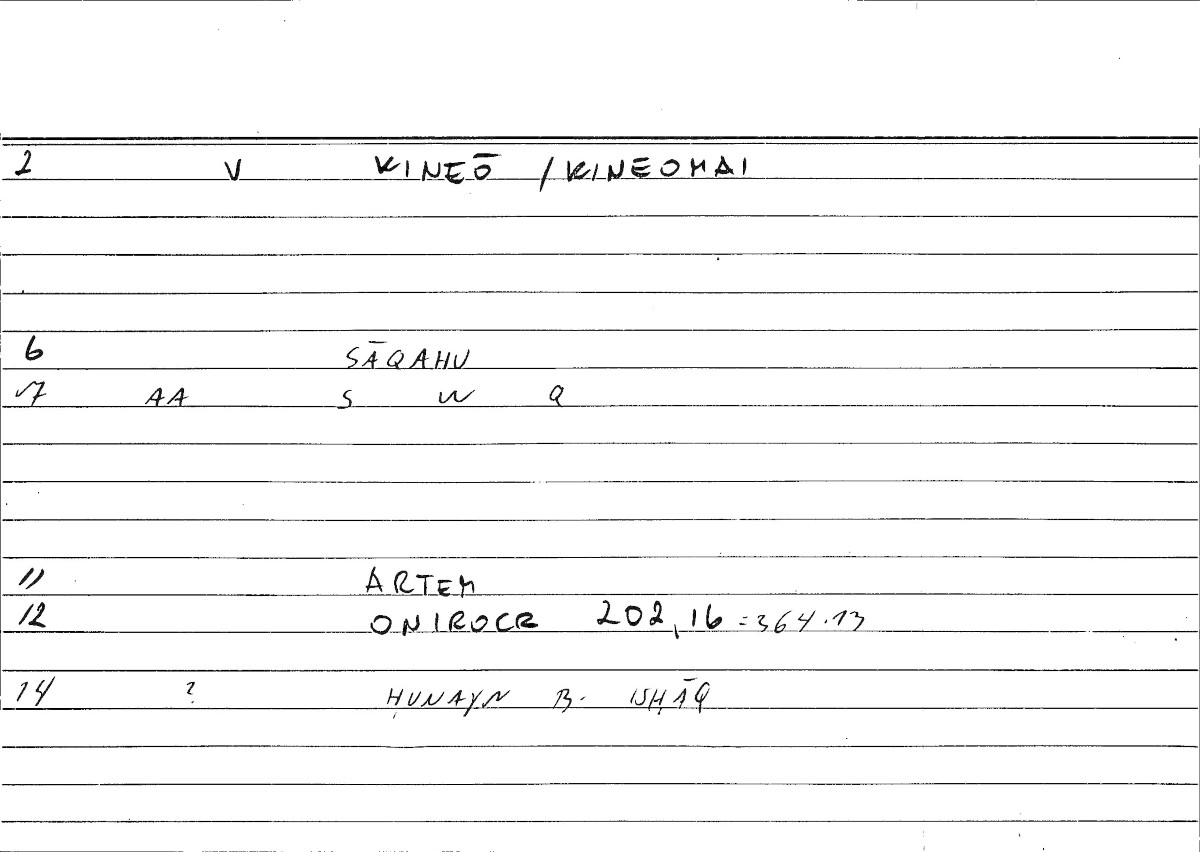 2 V KINEŌ / KINEOMAI
6 SĀQAHU
7 AA S W Q
11 ARTEM
12 ONIROCR 202,16 = 364.13
14 ? ḤUNAYN B. ISḤĀQ